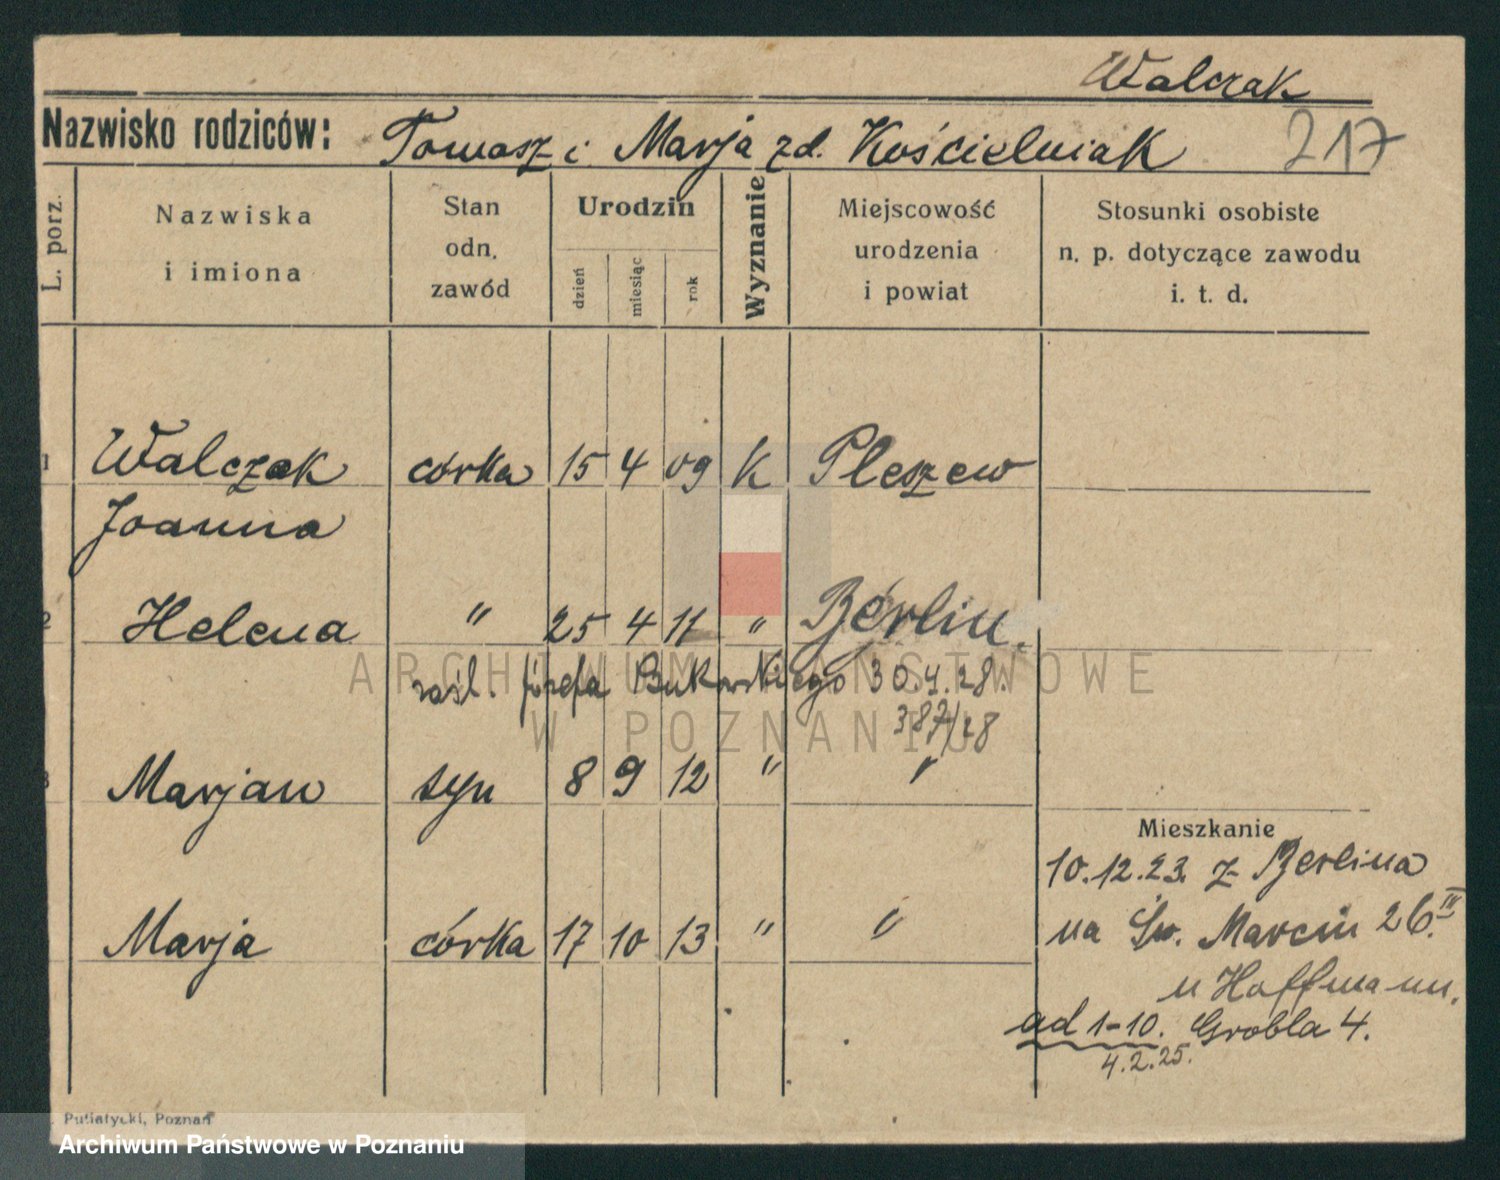 Walczak
Nazwisko rodziców: Tomasz i Marja zd. Kościelniak 217
L. porz.
Nazwiska i imiona
Stan odn. zawód
Urodzin
dzień miesiąc rok
Wyznanie
Miejscowość urodzenia i powiat
Stosunki osobiste n. p. dotyczące zawodu i. t. d.
1 Walczak córka 15 4 09 K Pleszew
Joanna
2 Helena " 25 4 11 " Berlin.
zaśl. Józefa Bukowskiego 30.4.28.
387/28
3 Marjan syn 8 9 12 " "
Mieszkanie
10.12.23. z Berlina
Marja córka 17 10 13 " "
na Św. Marcin 26 III
u Hoffmann.
ad 1-10. Grobla 4.
4.2.25.
Putiatycki, Poznań
Archiwum Państwowe w Poznaniu
ARCHIWUM PAŃSTWOWE
W POZNANIU